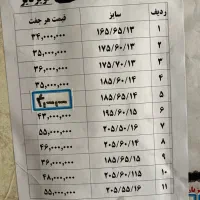 ردیف سایز قیمت هر جفت
۱ ۱۶۵/۶۵/۱۳ ۳۴,۰۰۰,۰۰۰
۲ ۱۷۵/۶۰/۱۳ ۳۵,۰۰۰,۰۰۰
۳ ۱۷۵/۷۰/۱۳ ۳۶,۰۰۰,۰۰۰
۴ ۱۸۵/۶۰/۱۴ ۳۵,۰۰۰,۰۰۰
۵ ۱۸۵/۶۵/۱۴
۶ ۱۹۵/۶۰/۱۵ ۴۳,۰۰۰,۰۰۰
۷ ۲۰۵/۵۰/۱۶ ۵۵,۰۰۰,۰۰۰
۸ ۲۰۵/۶۰/۱۴ ۴۶,۰۰۰,۰۰۰
۹ ۱۸۵/۶۵/۱۵ ۳۶,۰۰۰,۰۰۰
۱۰ ۲۰۵/۶۰/۱۵ ۴۸,۰۰۰,۰۰۰
۱۱ ۲۰۵/۵۵/۱۶ ۵۵,۰۰۰,۰۰۰